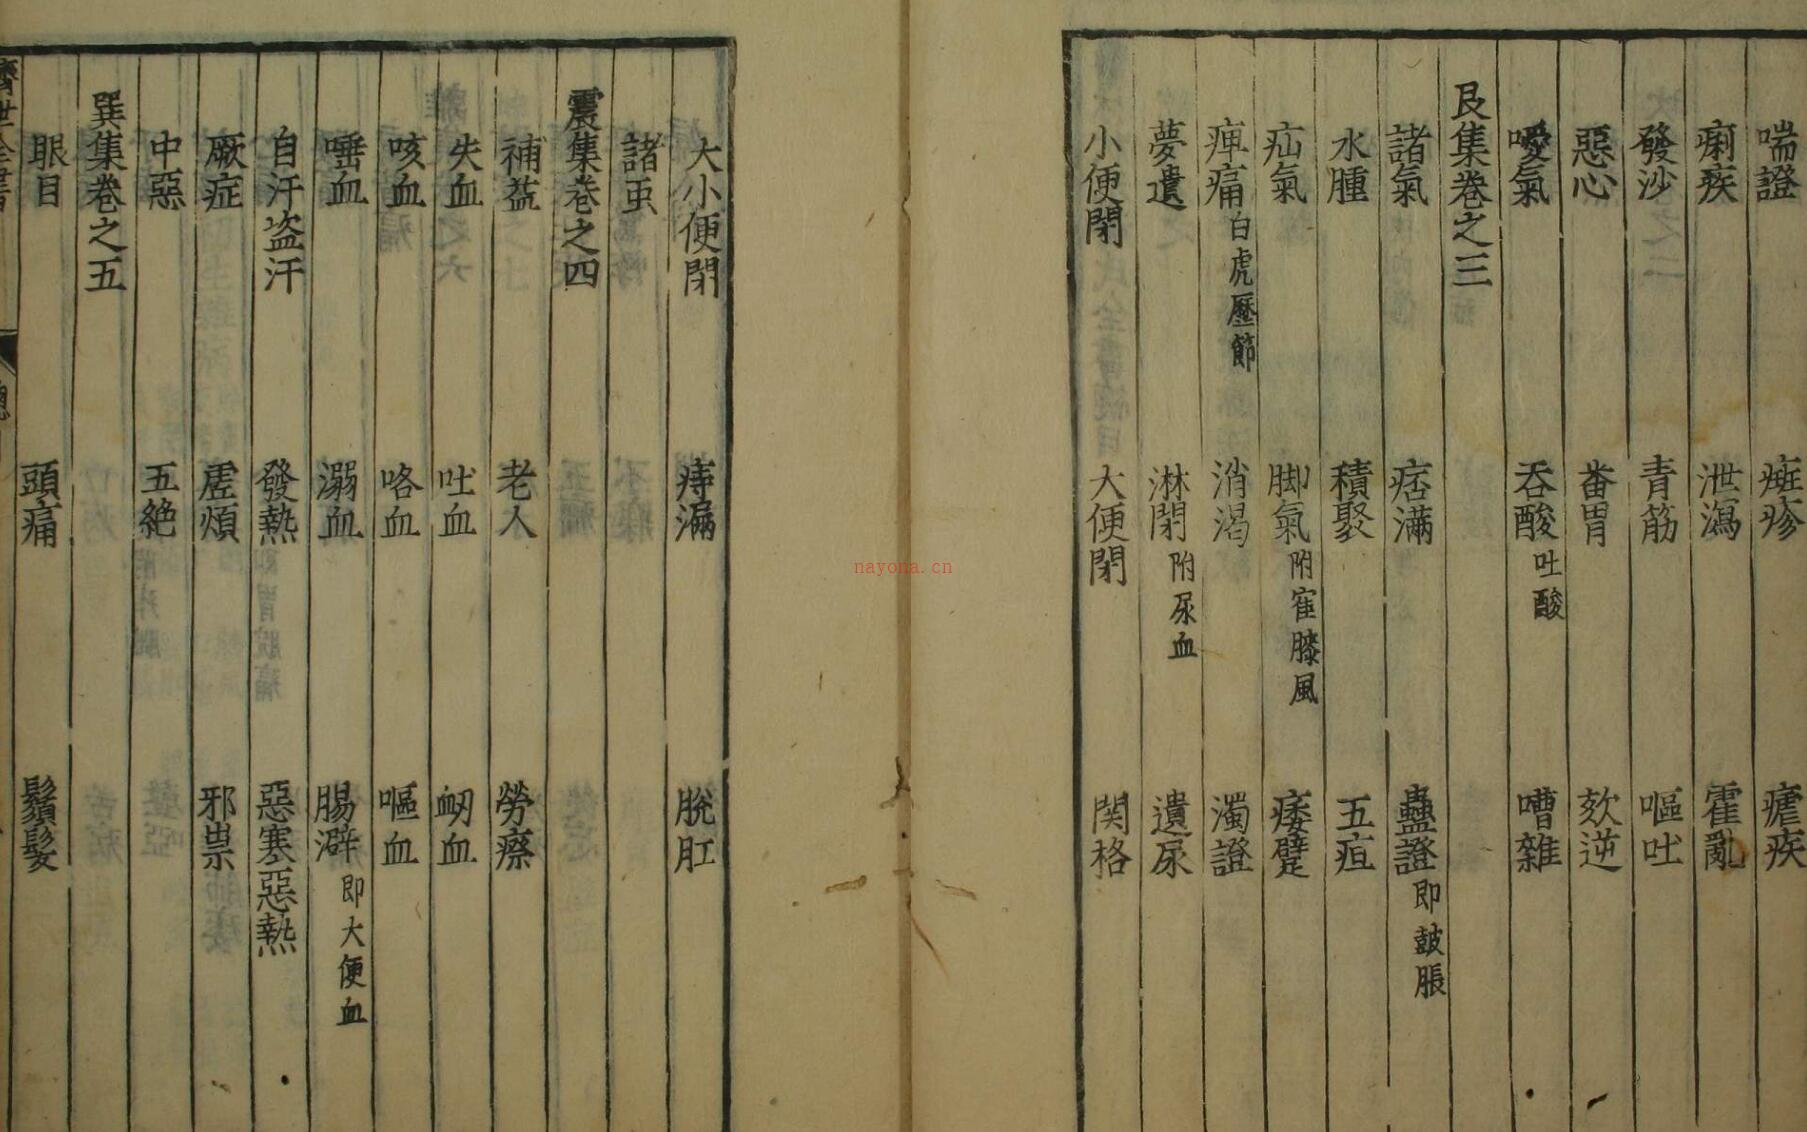 喘證 斑疹 瘧疾
痢疾 泄瀉 霍亂
發沙 青筋 嘔吐
惡心 畨胃 欬逆
噯氣 吞酸吐酸 嘈雜
艮集卷之三
諸氣 痞滿 蠱證即皷脹
水腫 積聚 五疸
疝氣 脚氣附寉膝風 痿躄
痺痛白虎歷節 消渴 濁證
夢遺 淋閉附尿血 遺尿
小便閉 大便閉 関格
大小便閉 痔漏 脫肛
諸䖝
震集卷之四
補益 老人 勞瘵
失血 吐血 衂血
咳血 咯血 嘔血
唾血 溺血 腸澼即大便血
自汗盗汗 發熱 惡寒惡熱
厥症 虛煩 邪祟
中惡 五絶
巽集卷之五
眼目 頭痛 鬚髮
濟世全書
總
nayona.cn